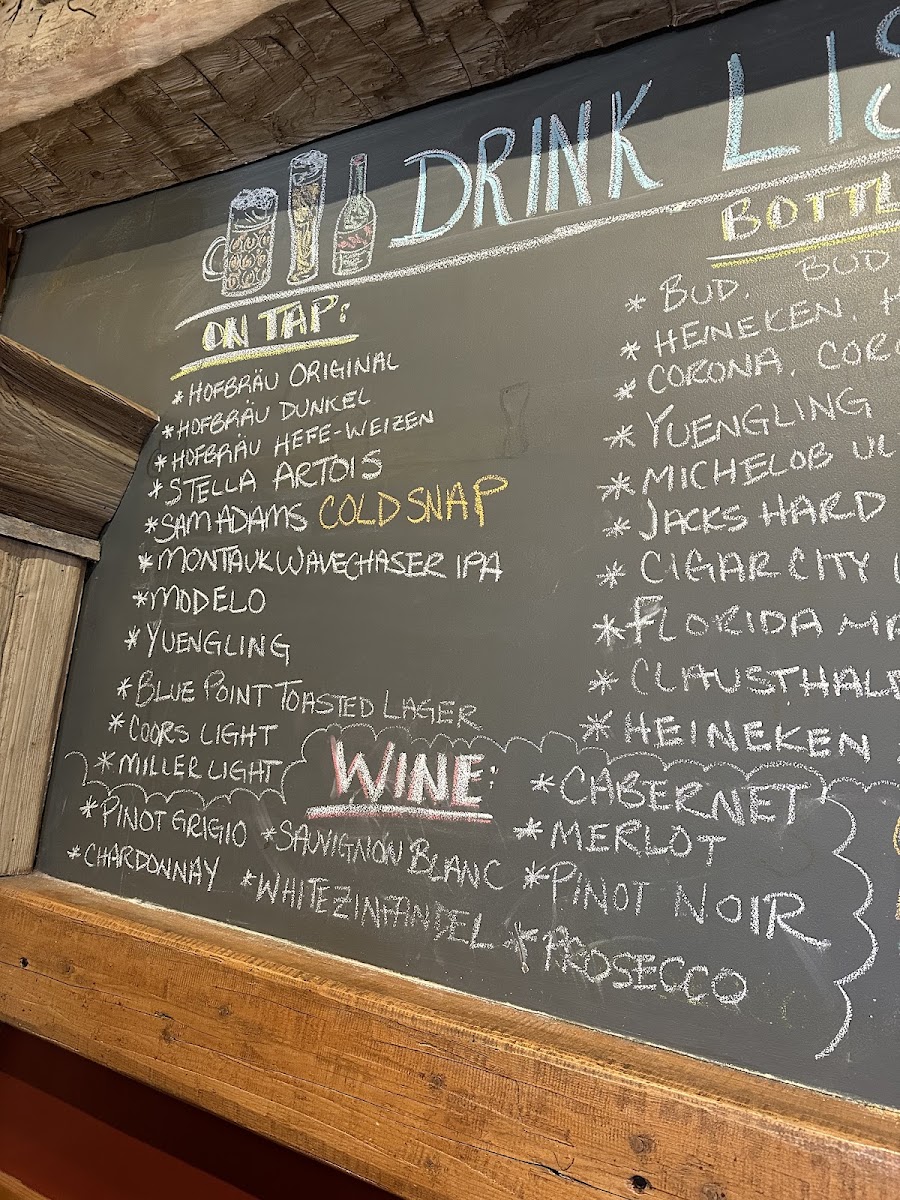 DRINK LIS
ON TAP:
* HOFBRÄU ORIGINAL
* HOFBRÄU DUNKEL
* HOFBRÄU HEFE-WEIZEN
* STELLA ARTOIS
* SAM ADAMS COLD SNAP
* MONTAUK WAVECHASER IPA
* MODELO
* YUENGLING
* BLUE POINT TOASTED LAGER
* COORS LIGHT
* MILLER LIGHT
BOTTL
* BUD. BUD
* HEINEKEN. H
* CORONA. CORO
* YUENGLING
* MICHELOB UL
* JACKS HARD
* CIGAR CITY
* FLORIDA
* CLAUSTHALE
* HEINEKEN
WINE:
* PINOT GRIGIO
* CHARDONNAY
* SAUVIGNON BLANC
* WHITE ZINFANDEL
* CABERNET
* MERLOT
* PINOT NOIR
* PROSECCO